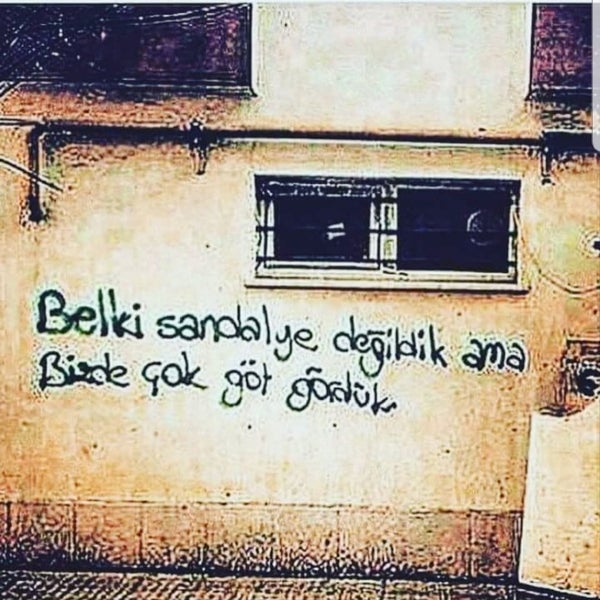 Belki sandalye değildik ama
Bizde çok göt gördük.